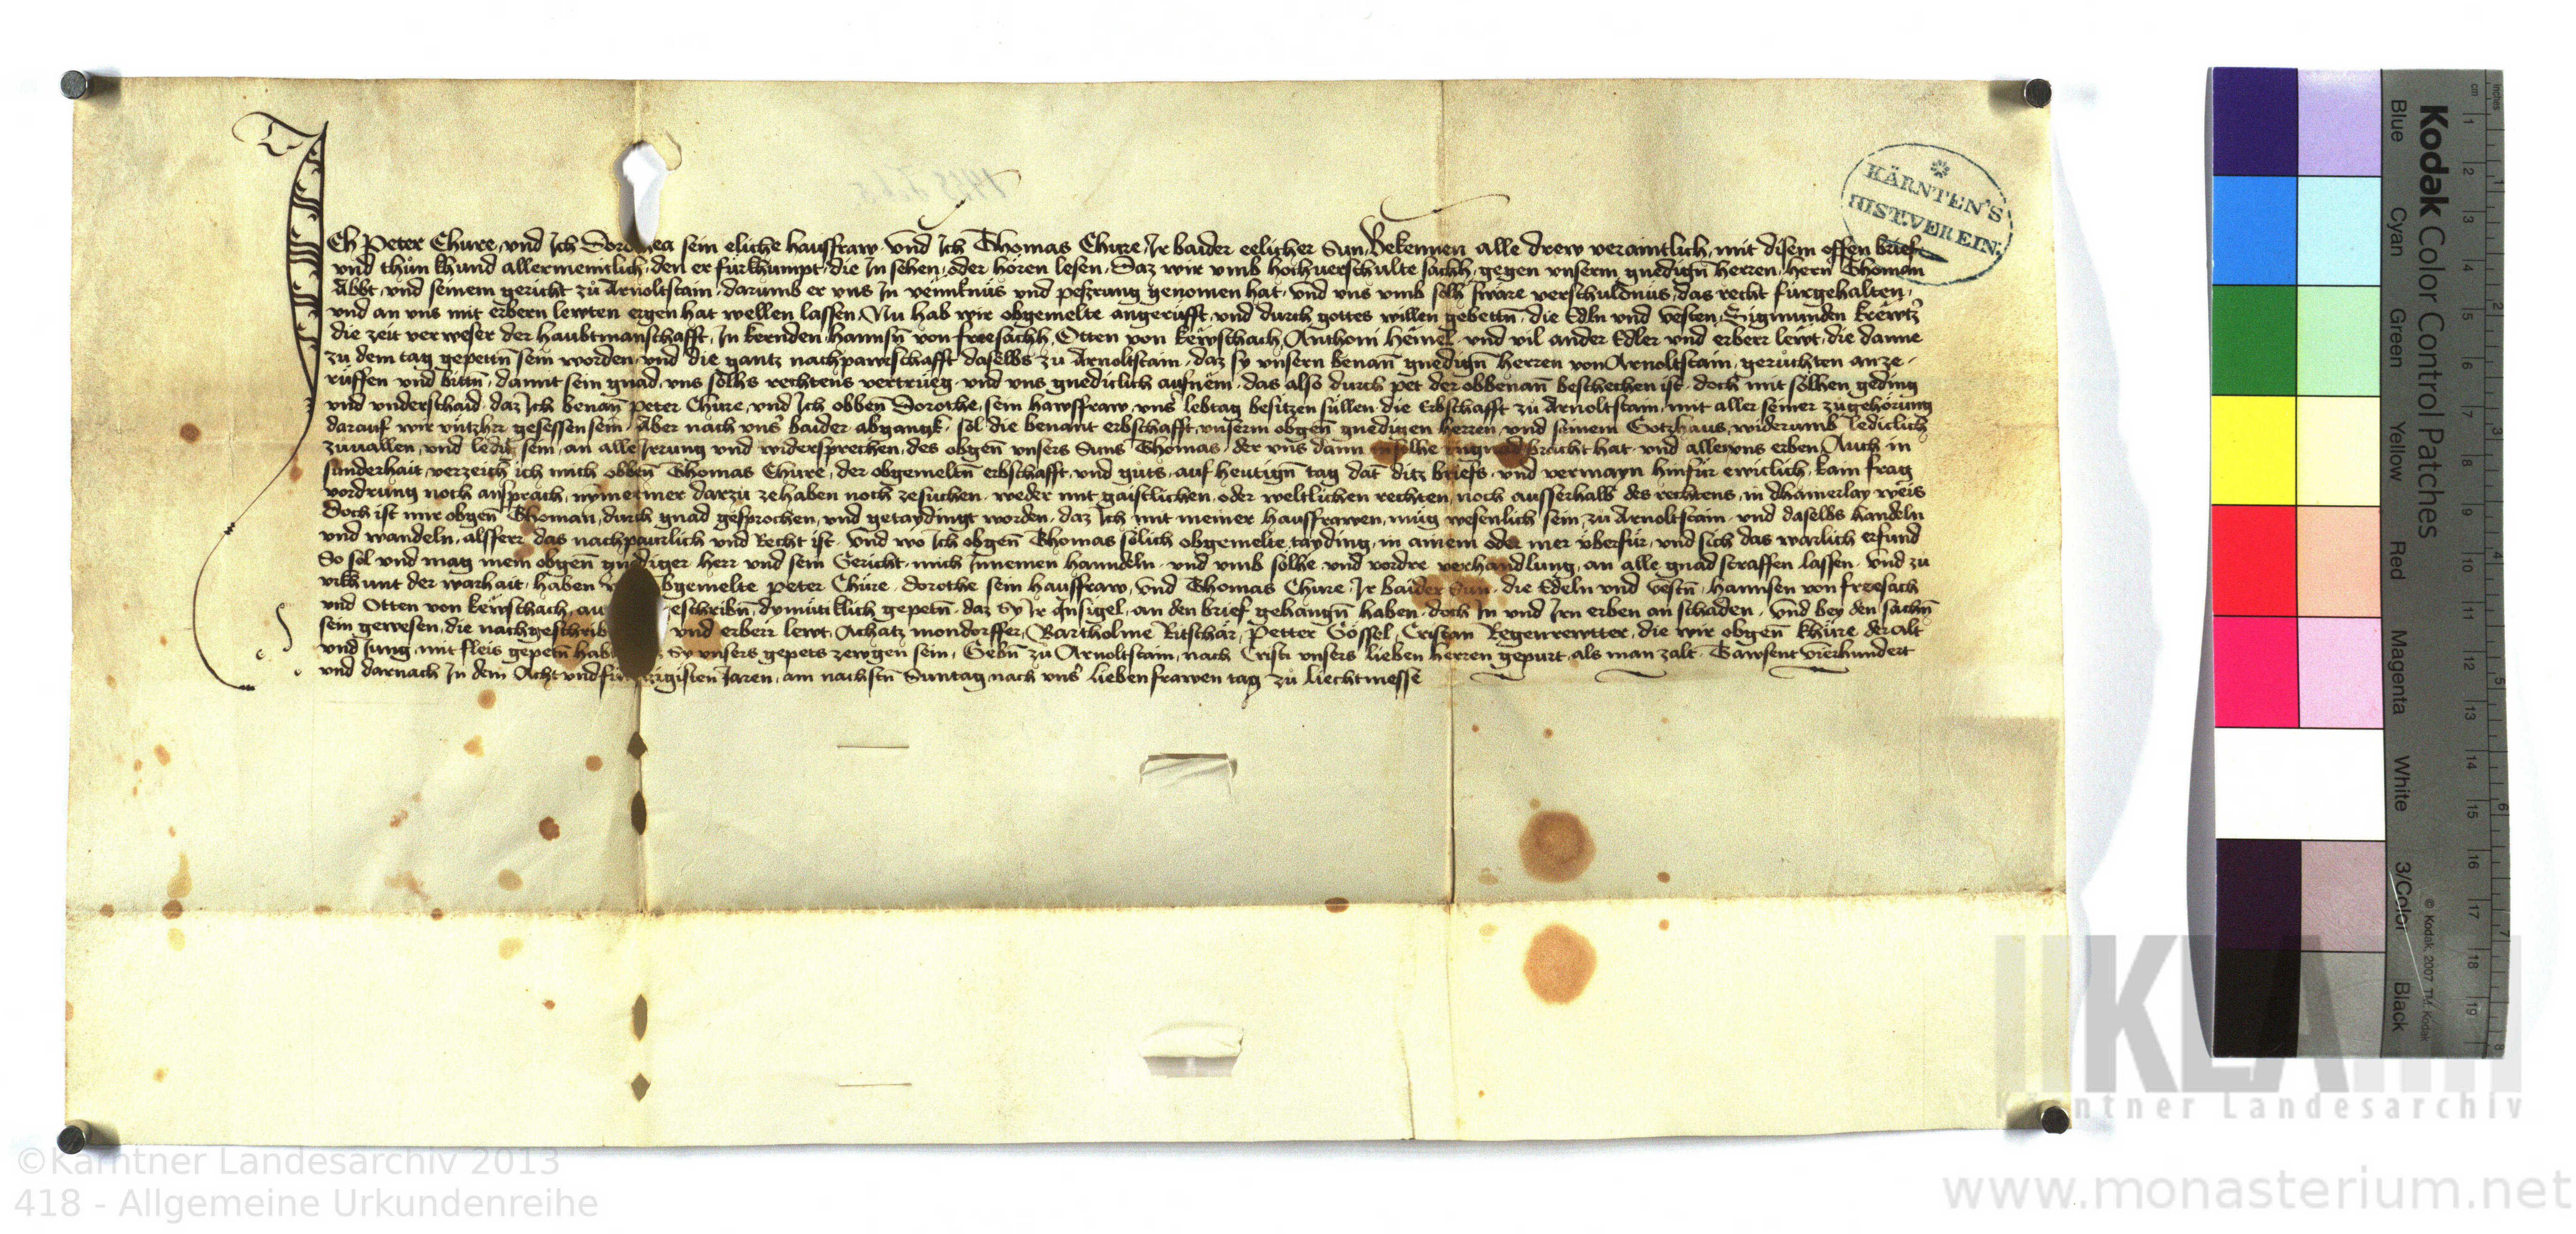 Ich Peter Chure, und Ich Dorothea sein eliche hausfraw. Und Ich Thomas Chure, Ir baider eelicher Sun, Bekennen alle drew veraintlich, mit disem offen brief
und thůn khund allermenntlich, den er fürkhumpt, die In sehen, oder hören lesen, Daz wir umb hochuerschulte sachh, gegen unserm gnedign̄ herren, hern Thoman
Abbt, und seinem gericht zů Arnoltstain, darumb er uns In vennknüs und peßrung genomen hat, und uns umb solh swäre verschuldnüs, das recht fürgehalten,
und an uns mit erbern lewten ergen hat wellen lassen, Nu hab wir obgemelte angerufft, und durch gottes willen gebettn̄, die Edln und vesten, Sigmunden krëwtz̓
die zeit verweser der haubtmanschafft, In kernden, hannsn̄ von freesachh, Otten von kewschach, Anthoni Hëmel, und vil ander Edler und erberr lewt, die danne
zu dem tag gepettn̄ sein worden, und die gantz nachpawrschafft daselbs zu Arnoltstain, daz sy unsern benan̄ gnedign̄ herren von Arnoltstain, geruchten anze
rüffen und bittn̄, damit sein gnad, uns solhs rechtens vertrüeg, und uns gnediclich aufnëm, das also durch pet der obbenan̄ beschechen ist, doch mit solhen geding
und underschaid, daz Ich benan̄ Peter Chure, und Ich obben̄ Dorothe, sein hawsfraw, uns̓ lebtag besitzen süllen, die Erbschafft zu Arnoltstain, mit aller seiner zůgehörung
darauf wir untzher gesessen sein, Aber nach uns̓ baider abgangk, sol die benant erbschafft, unserm obgen̄ gnedigen herren, und seinem Gotzhaus, widerumb lediclich
zuuallen, und ledig sein, an alle Irrung und widersprechen, des obgen̄ unsers Suns Thomas, der uns dann in solhe ungnad bracht hat, und aller uns erben, Auch in
sunderhait, verzeich ich mich obben̄ Thomas Chure, der obgemeltn̄ erbschafft, und guts, auf heutign̄ tag dat ditz briefs, und vermayn hinfür ewiclich, kain frag
vordrung noch ansprach, nymermer darzu zehaben noch zesuchen, weder mit gaistlichen, oder weltlichen rechten, noch ausserhalb des rechtens, in dhainerlay weis
Doch ist mir obgen̄ Thoman, durch gnad gesprochen, und getaydingt worden, daz Ich mit meiner hausfrawen, müg wesenlich sein, zu Arnoltstain, und daselbs handeln
und wandeln, alsferr das nachpaurlich und Recht ist, Und wo Ich obgen̄ Thomas solich obgemelte tayding, in ainem oder mer überfür, und sich das warlich erfund
So sol und mag mein obgen̄ gnediger herr und sein Gericht, mich Innemen hanndeln, und umb solhe, und vordre verhandlung, an alle gnad straffen lassen, Und zu
urkhunt der warhait, haben bgemelte Peter Chure, Dorothe sein hausfraw, Und Thomas Chure, Ir baider Sun, die Edeln und vestn̄, hannsen von freesach
und Otten von kewschach, au eschribn̄, dymütiklich gepetn̄, daz Sy Ir Insigel, an den brief gehangn̄ haben, doch In und Irn erben an schaden, Und bey den sachn̄
sein gewesen, die nachgeschrib und erberr lewt, Achatz mondorffer, Bartholme Ritschär, Petter Gössel, Cristan Regenrewtter, die wir obgen̄ khure, der alt
und Jung, mit fleis gepetn̄ hab Sy unsers gepets zewgen sein, Gebn̄ zu Arnoltstain, nach Cristi unsers lieben herren gepurt, als man zalt, Tawsent vierhundert
und darnach In dem Acht und fünfzigisten Jaren, am nachstn̄ Suntag nach uns̓ lieben frawen tag zu liechtmesse
KÄRNTEN'S
HIST. VEREIN.
Kodak Color Control Patches
Blue Cyan Green Yellow Red Magenta White 3/Color Black
© Kodak, 2007 TM: Kodak
cm 1 2 3 4 5 6 7 8 9 10 11 12 13 14 15 16 17 18 19
inches 1 2 3 4 5 6 7 8
KLA
Kärntner Landesarchiv
©Kärntner Landesarchiv 2013
418 - Allgemeine Urkundenreihe
www.monasterium.net